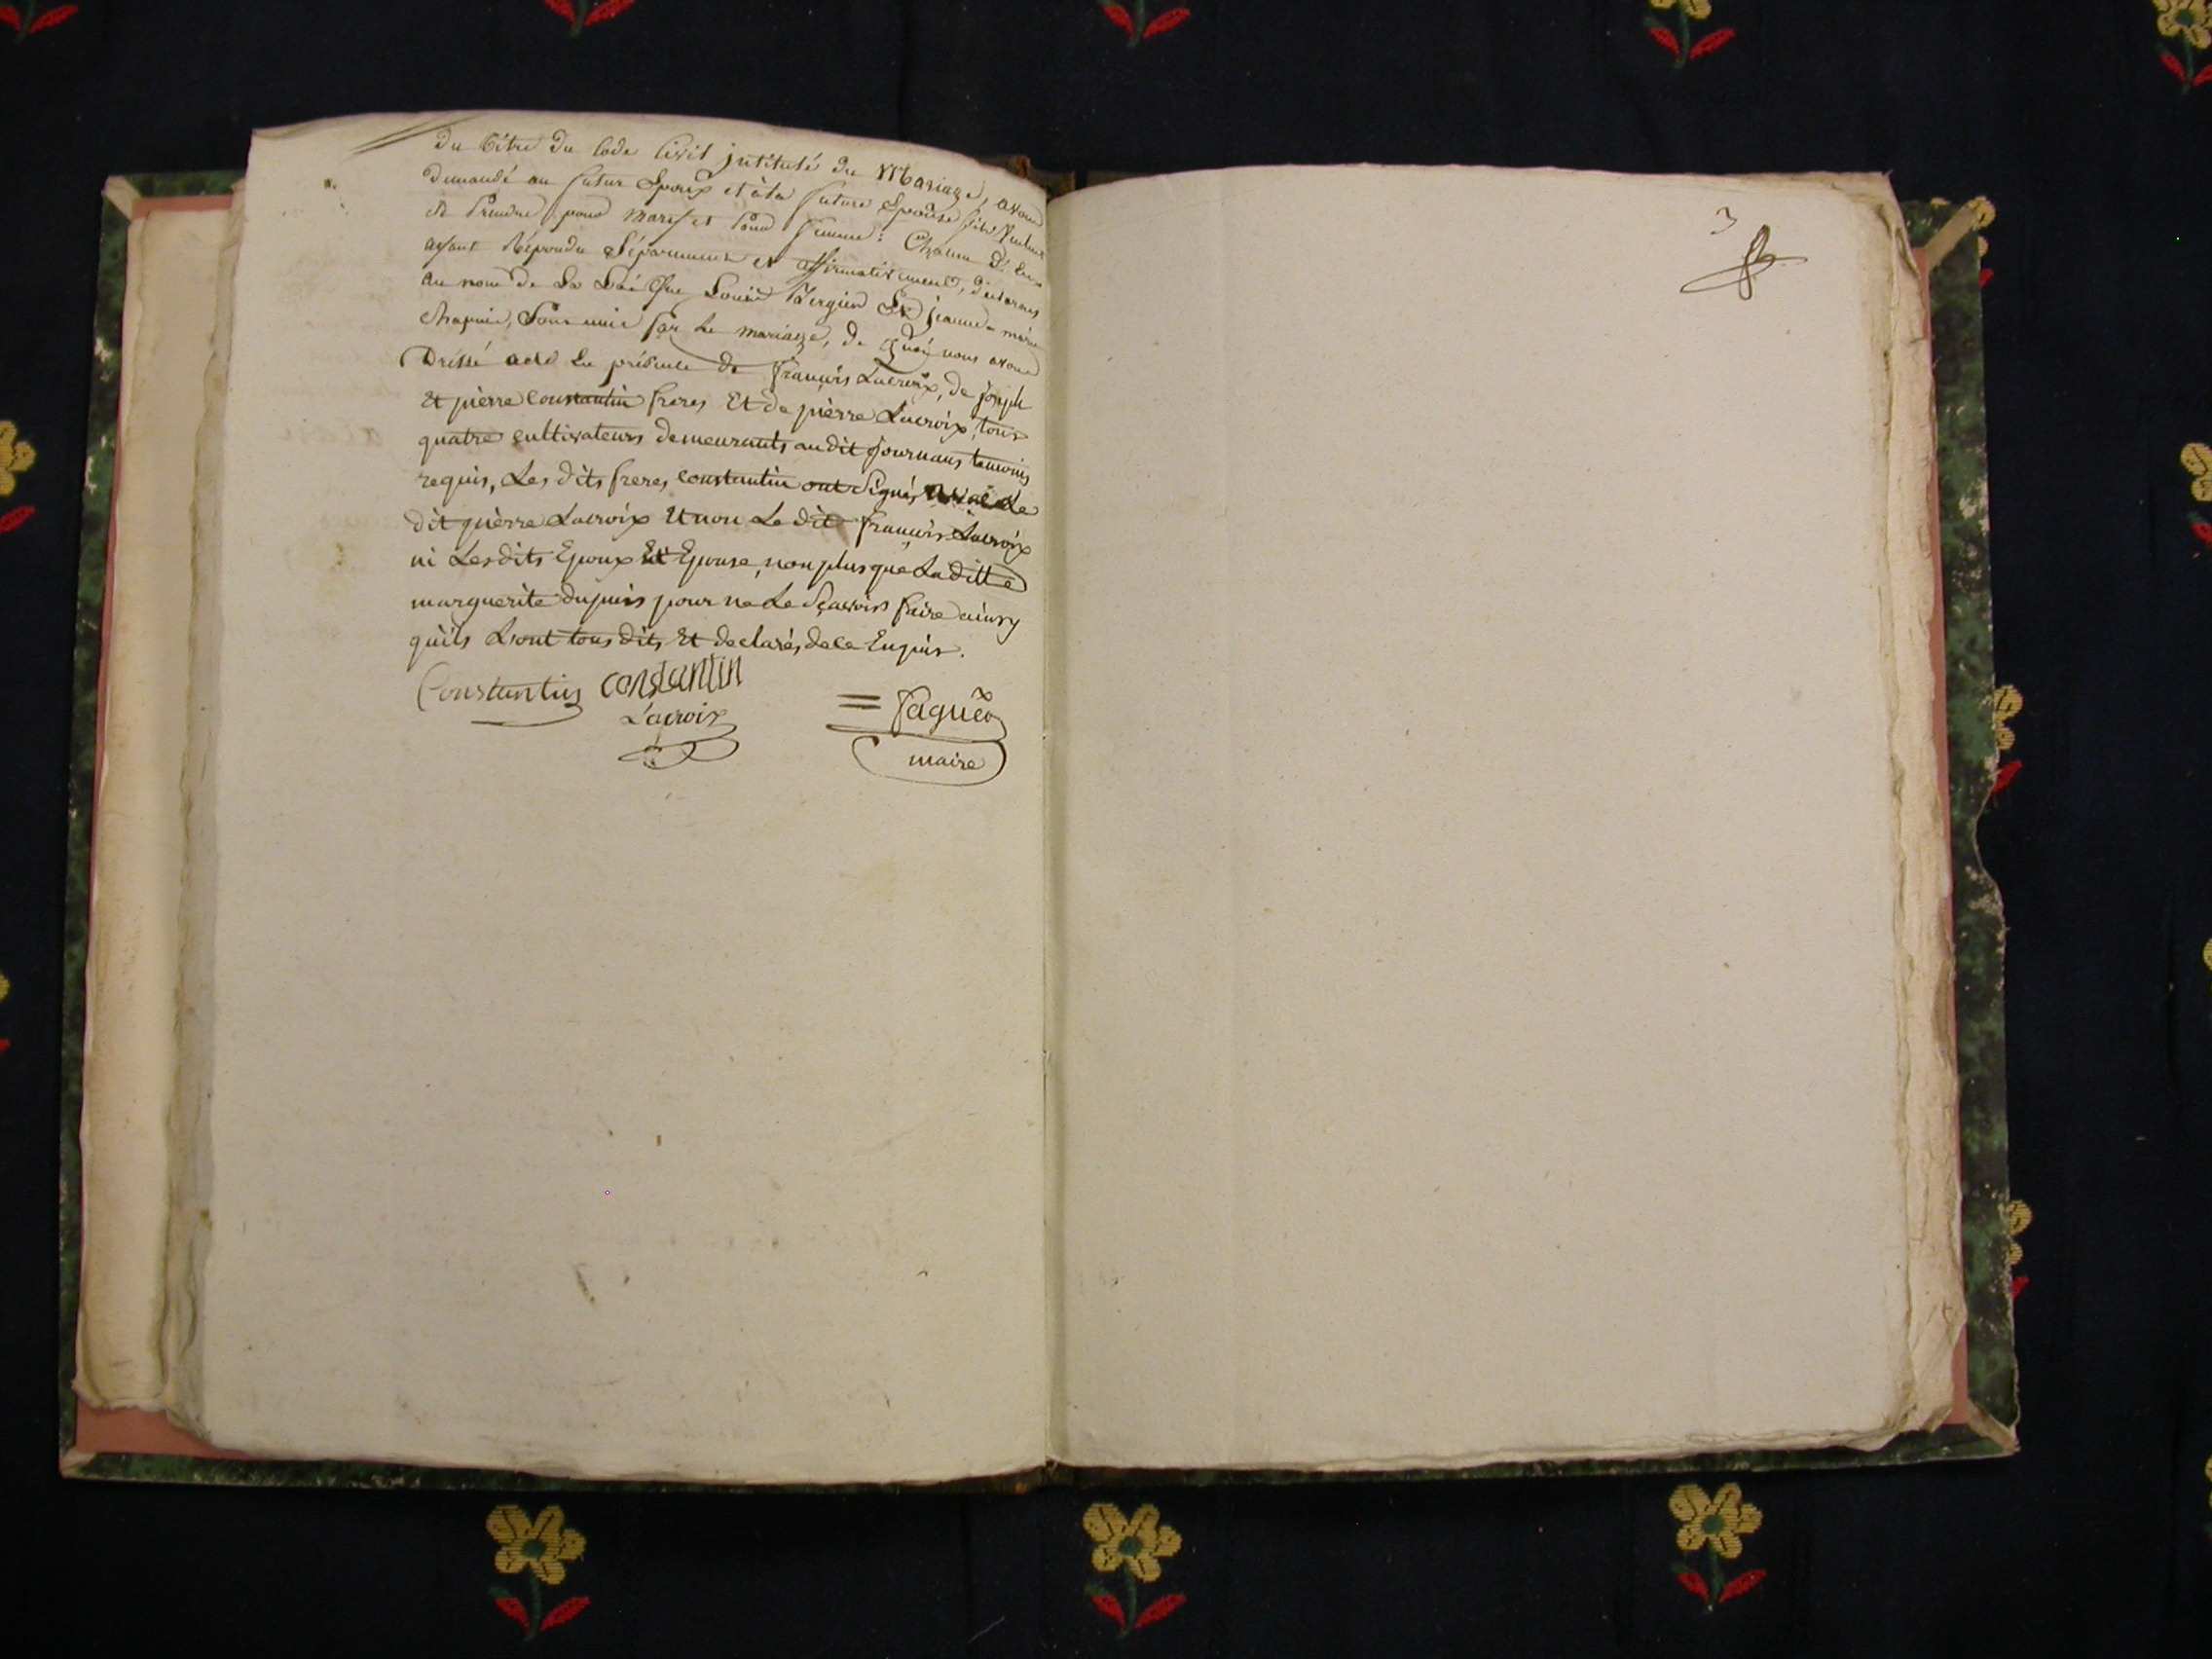 du titre du Code Civil jntitulé du Mariage, avons
demandé au futur Epoux et à la future Epouse s'ils veulent
se Prendre pour mary et pour femme : Chacun d'Eux
ayant Répondu séparement et affirmativement, déclarons
au nom de La Loi Que Louis Bergier Et jeanne-marie
Chapuis, Sont unis par Le mariage, de quoi nous avons
Dréssé acte En présence de françois Lacroix, de joseph
Et pierre Constantin freres Et de pierre Lacroix, tous
quatre cultivateurs demeurants au dit journans temoins
requis, Les dits freres Constantin ont signés Le
dit pierre Lacroix Et non Le dit françois Lacroix
ni Les dits Epoux Et Epouse, non plus que La ditte
marguerite dupuis pour ne Le sçavoir faire ainsy
qu'ils L'ont tous dits Et declarés de ce Enquis.
Constantin constantin
Lacroix
= faguéo
maire
3